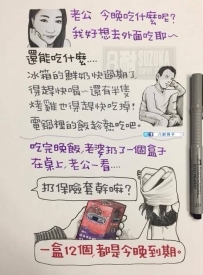 老公 今晚吃什麼呢?
我好想去外面吃耶~
還能吃什麼....
冰箱的鮮奶快過期了
得趕快喝~還有半隻
烤雞也得趕快吃掉!
電鍋裡的飯趁熱吃吧。
吃完晚飯,老婆扔了一個盒子
在桌上,老公一看....
扔保險套幹嘛?
一盒12個,都是今晚到期。